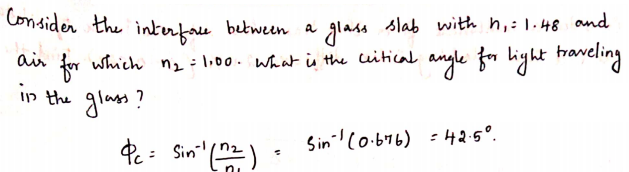 Consider the interface between a glass slab with n₁ = 1.48 and
air for which n₂ = 1.00. What is the critical angle for light traveling
in the glass?
ϕc = Sin⁻¹(n₂/n₁) = Sin⁻¹(0.676) = 42.5°.